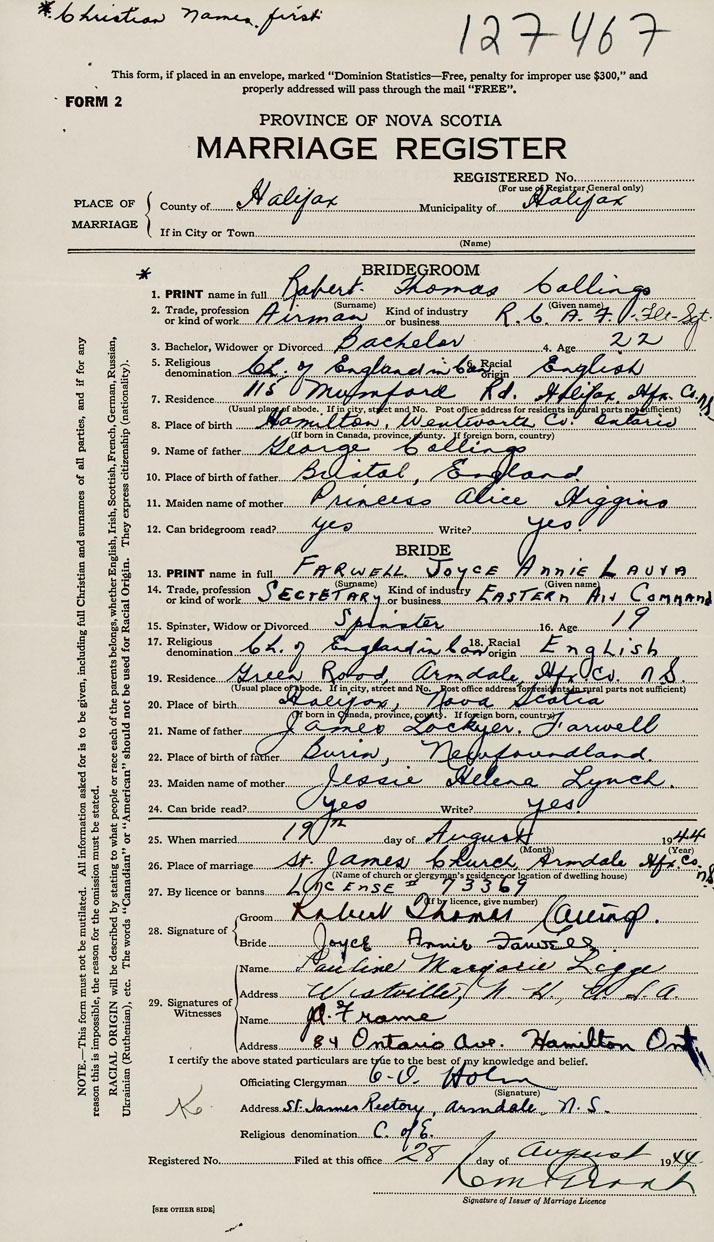 *. Christian Names first
127467
This form, if placed in an envelope, marked "Dominion Statistics—Free, penalty for improper use $300," and
properly addressed will pass through the mail "FREE".
FORM 2
PROVINCE OF NOVA SCOTIA
MARRIAGE REGISTER
REGISTERED No.
(For use of Registrar General only)
PLACE OF MARRIAGE
County of Halifax Municipality of Halifax
If in City or Town
(Name)
*
BRIDEGROOM
1. PRINT name in full Robert Thomas Collings
(Surname) (Given name)
2. Trade, profession or kind of work Airman Kind of industry or business R.C.A.F. Flt-Sgt.
3. Bachelor, Widower or Divorced Bachelor 4. Age 22
5. Religious denomination Ch. of England in Can 6. Racial origin English
7. Residence 115 Mumford Rd. Halifax, Hfx. Co. N.S.
(Usual place of abode. If in city, street and No. Post office address for residents in rural parts not sufficient)
8. Place of birth Hamilton, Wentworth Co. Ontario
(If born in Canada, province, county. If foreign born, country)
9. Name of father George Collings
10. Place of birth of father Bristol, England
11. Maiden name of mother Princess Alice Higgins
12. Can bridegroom read? yes Write? yes.
BRIDE
13. PRINT name in full FARWELL JOYCE ANNIE LAURA
(Surname) (Given name)
14. Trade, profession or kind of work SECRETARY Kind of industry or business EASTERN AIR COMMAND
15. Spinster, Widow or Divorced Spinster 16. Age 19
17. Religious denomination Ch. of England in Can 18. Racial origin English
19. Residence Green Road, Armdale, Hfx Co. N.S.
(Usual place of abode. If in city, street and No. Post office address for residents in rural parts not sufficient)
20. Place of birth Halifax, Nova Scotia
(If born in Canada, province, county. If foreign born, country)
21. Name of father James Lockyer Farwell
22. Place of birth of father Burin, Newfoundland.
23. Maiden name of mother Jessie Helena Lynch.
24. Can bride read? yes Write? yes.
25. When married 19th day of August 1944
(Month) (Year)
26. Place of marriage St. James Church, Armdale Hfx. Co. N.S.
(Name of church or clergyman's residence or location of dwelling house)
27. By licence or banns LINCENSE # 73369
(If by licence, give number)
28. Signature of
Groom Robert Thomas Collings.
Bride Joyce Annie Farwell.
29. Signatures of Witnesses
Name Pauline Marjorie Legge
Address Westville, N.H., U.S.A.
Name Frame
Address 84 Ontario Ave. Hamilton Ont.
I certify the above stated particulars are true to the best of my knowledge and belief.
Officiating Clergyman Holm
(Signature)
Address St. James Rectory, Armdale, N.S.
Religious denomination C. of E.
Registered No. Filed at this office 28 day of August 1944
Signature of Issuer of Marriage Licence
[SEE OTHER SIDE]
NOTE.—This form must not be mutilated. All information asked for is to be given, including full Christian and surnames of all parties, and if for any
reason this is impossible, the reason for the omission must be stated.
RACIAL ORIGIN will be described by stating to what people or race each of the parents belongs, whether English, Irish, Scottish, French, German, Russian,
Ukrainian (Ruthenian), etc. The words "Canadian" or "American" should not be used for Racial Origin. They express citizenship (nationality).